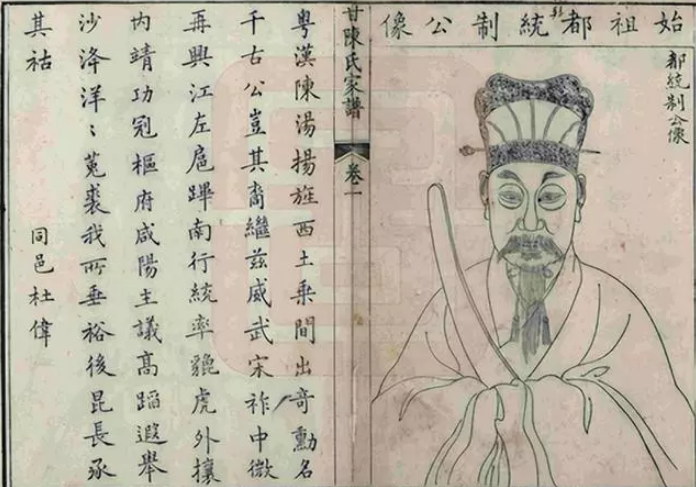 始祖都統制公像
都統制公像
甘陳氏家譜
卷一
粵漢陳湯揚旌西土乗間出竒勳名
千古公豈其裔繼茲威武宋祚中微
再興江左扈蹕南行統率貔虎外攘
内靖功冠樞府咸陽主議高蹈遐舉
沙洚洋〻菟裘我所垂裕後昆長承
其祜
同邑杜偉